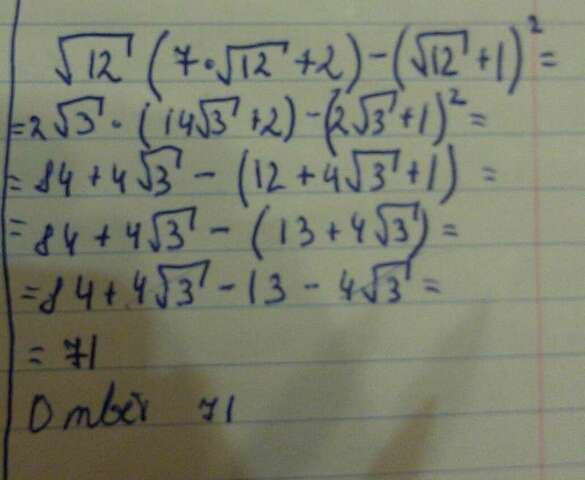 √12 (7·√12 + 2) − (√12 + 1)² =
= 2√3 · (14√3 + 2) − (2√3 + 1)² =
= 84 + 4√3 − (12 + 4√3 + 1) =
= 84 + 4√3 − (13 + 4√3) =
= 84 + 4√3 − 13 − 4√3 =
= 71
Ответ 71